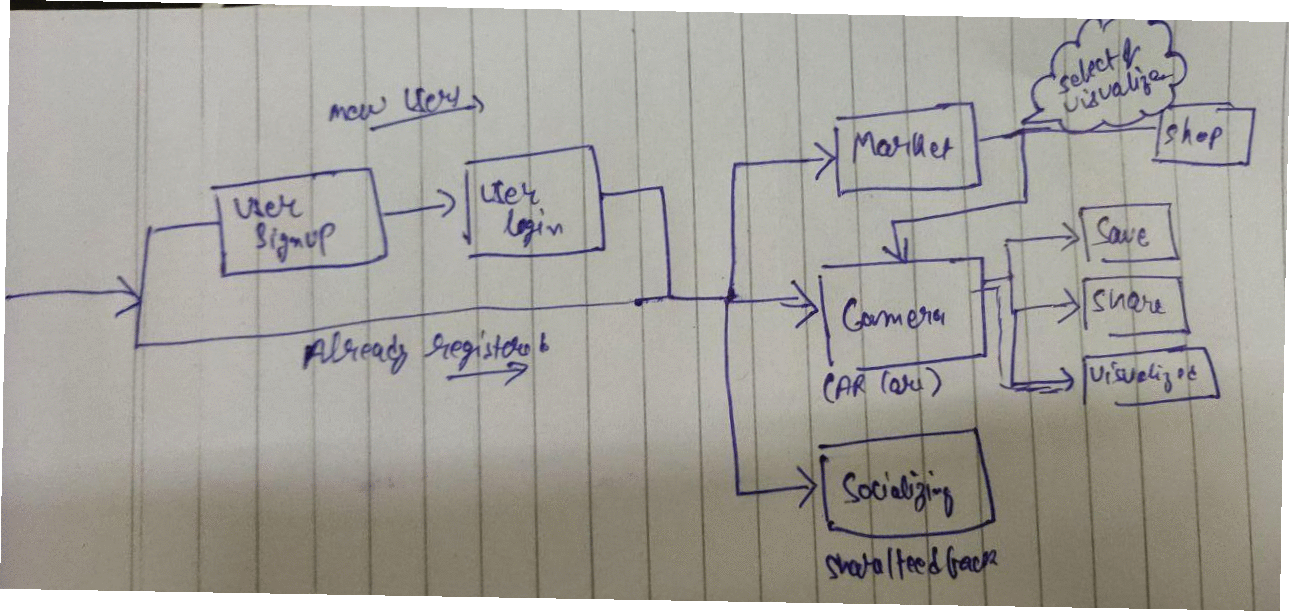 new User
User
Signup
User
login
Already registered
Market
select &
visualize
Shop
Camera
(AR Core)
Save
Share
visualized
Socializing
Share/feedback